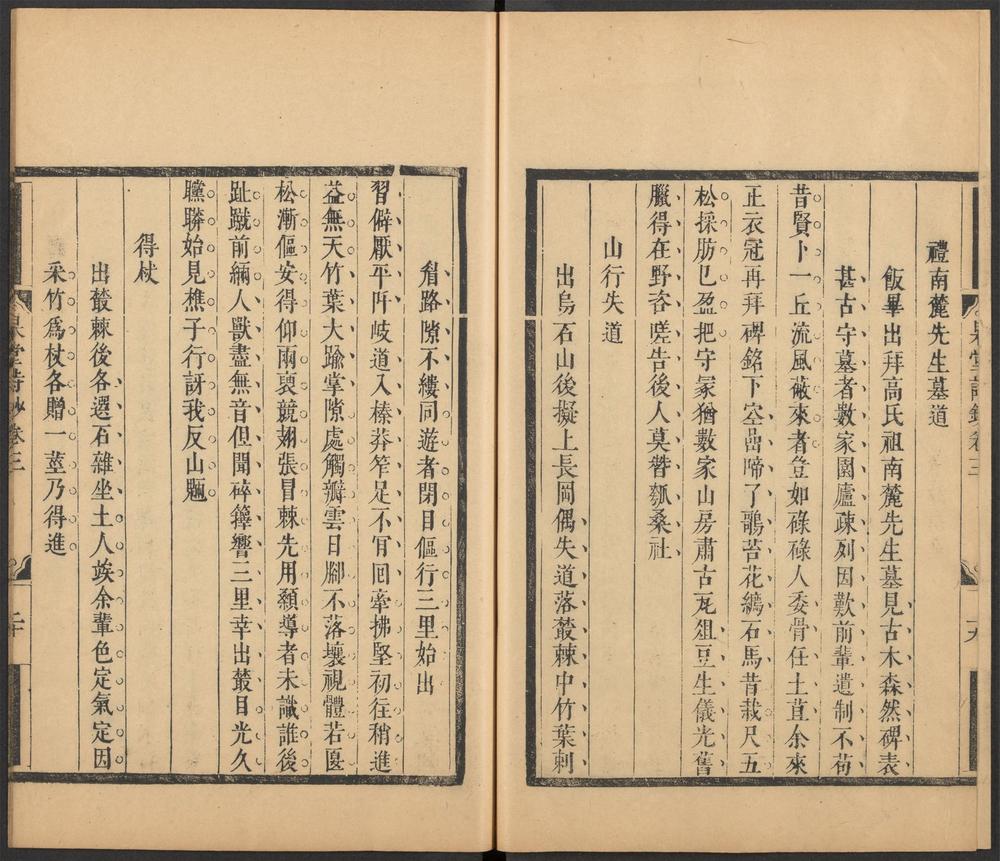 杲堂詩鈔卷三
十九
禮南麓先生墓道
飯畢出拜高氏祖南麓先生墓見古木森然碑表
甚古守墓者數家園廬疎列因歎前輩遺制不苟
昔賢卜一丘流風蔽來者豈如碌碌人委骨任土苴余來
正衣冠再拜碑銘下空嵒啼了鶻苔花繡石馬昔栽尺五
松採肪已盈把守冢猶數家山房肅古瓦俎豆生儀光舊
臘得在野咨嗟告後人莫替瓠桑社
山行失道
出烏石山後擬上長岡偶失道落叢棘中竹葉刺
眉路隙不縷同遊者閉目傴行三里始出
習僻厭平阡岐道入榛莽窄足不肎回牽拂堅初往稍進
益無天竹葉大踰掌隙處觸瓣雲日腳不落壤視體若匽
松漸傴安得仰兩裒競翅張冒棘先用顙導者未識誰後
趾蹴前緉人獸盡無音但聞碎籜響三里幸出叢目光久
矘䁳始見樵子行訝我反山魎
得杖
出叢棘後各選石雜坐土人竢余輩色定氣定因
采竹爲杖各贈一莖乃得進
杲堂詩鈔卷三
二十